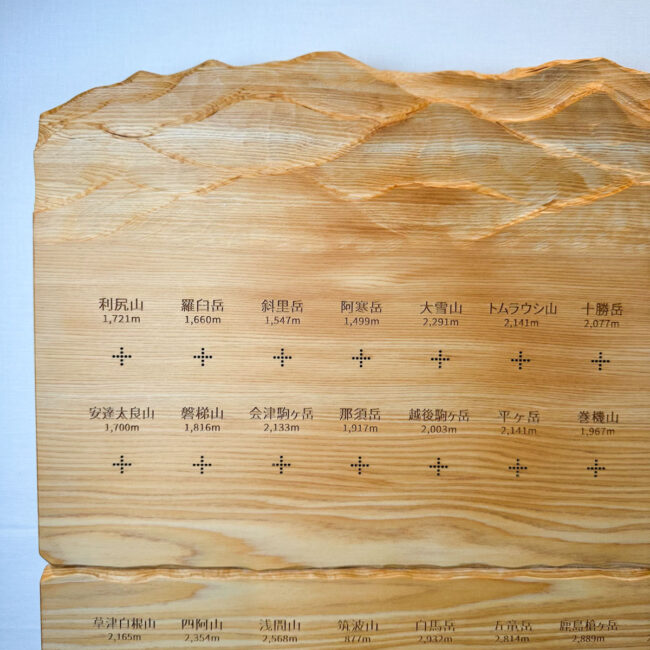 利尻山 羅臼岳 斜里岳 阿寒岳 大雪山 トムラウシ山 十勝岳
1,721m 1,660m 1,547m 1,499m 2,291m 2,141m 2,077m
安達太良山 磐梯山 会津駒ヶ岳 那須岳 越後駒ヶ岳 平ヶ岳 巻機山
1,700m 1,816m 2,133m 1,917m 2,003m 2,141m 1,967m
草津白根山 四阿山 浅間山 筑波山 白馬岳 五竜岳 鹿島槍ヶ岳
2,165m 2,354m 2,568m 877m 2,932m 2,814m 2,889m